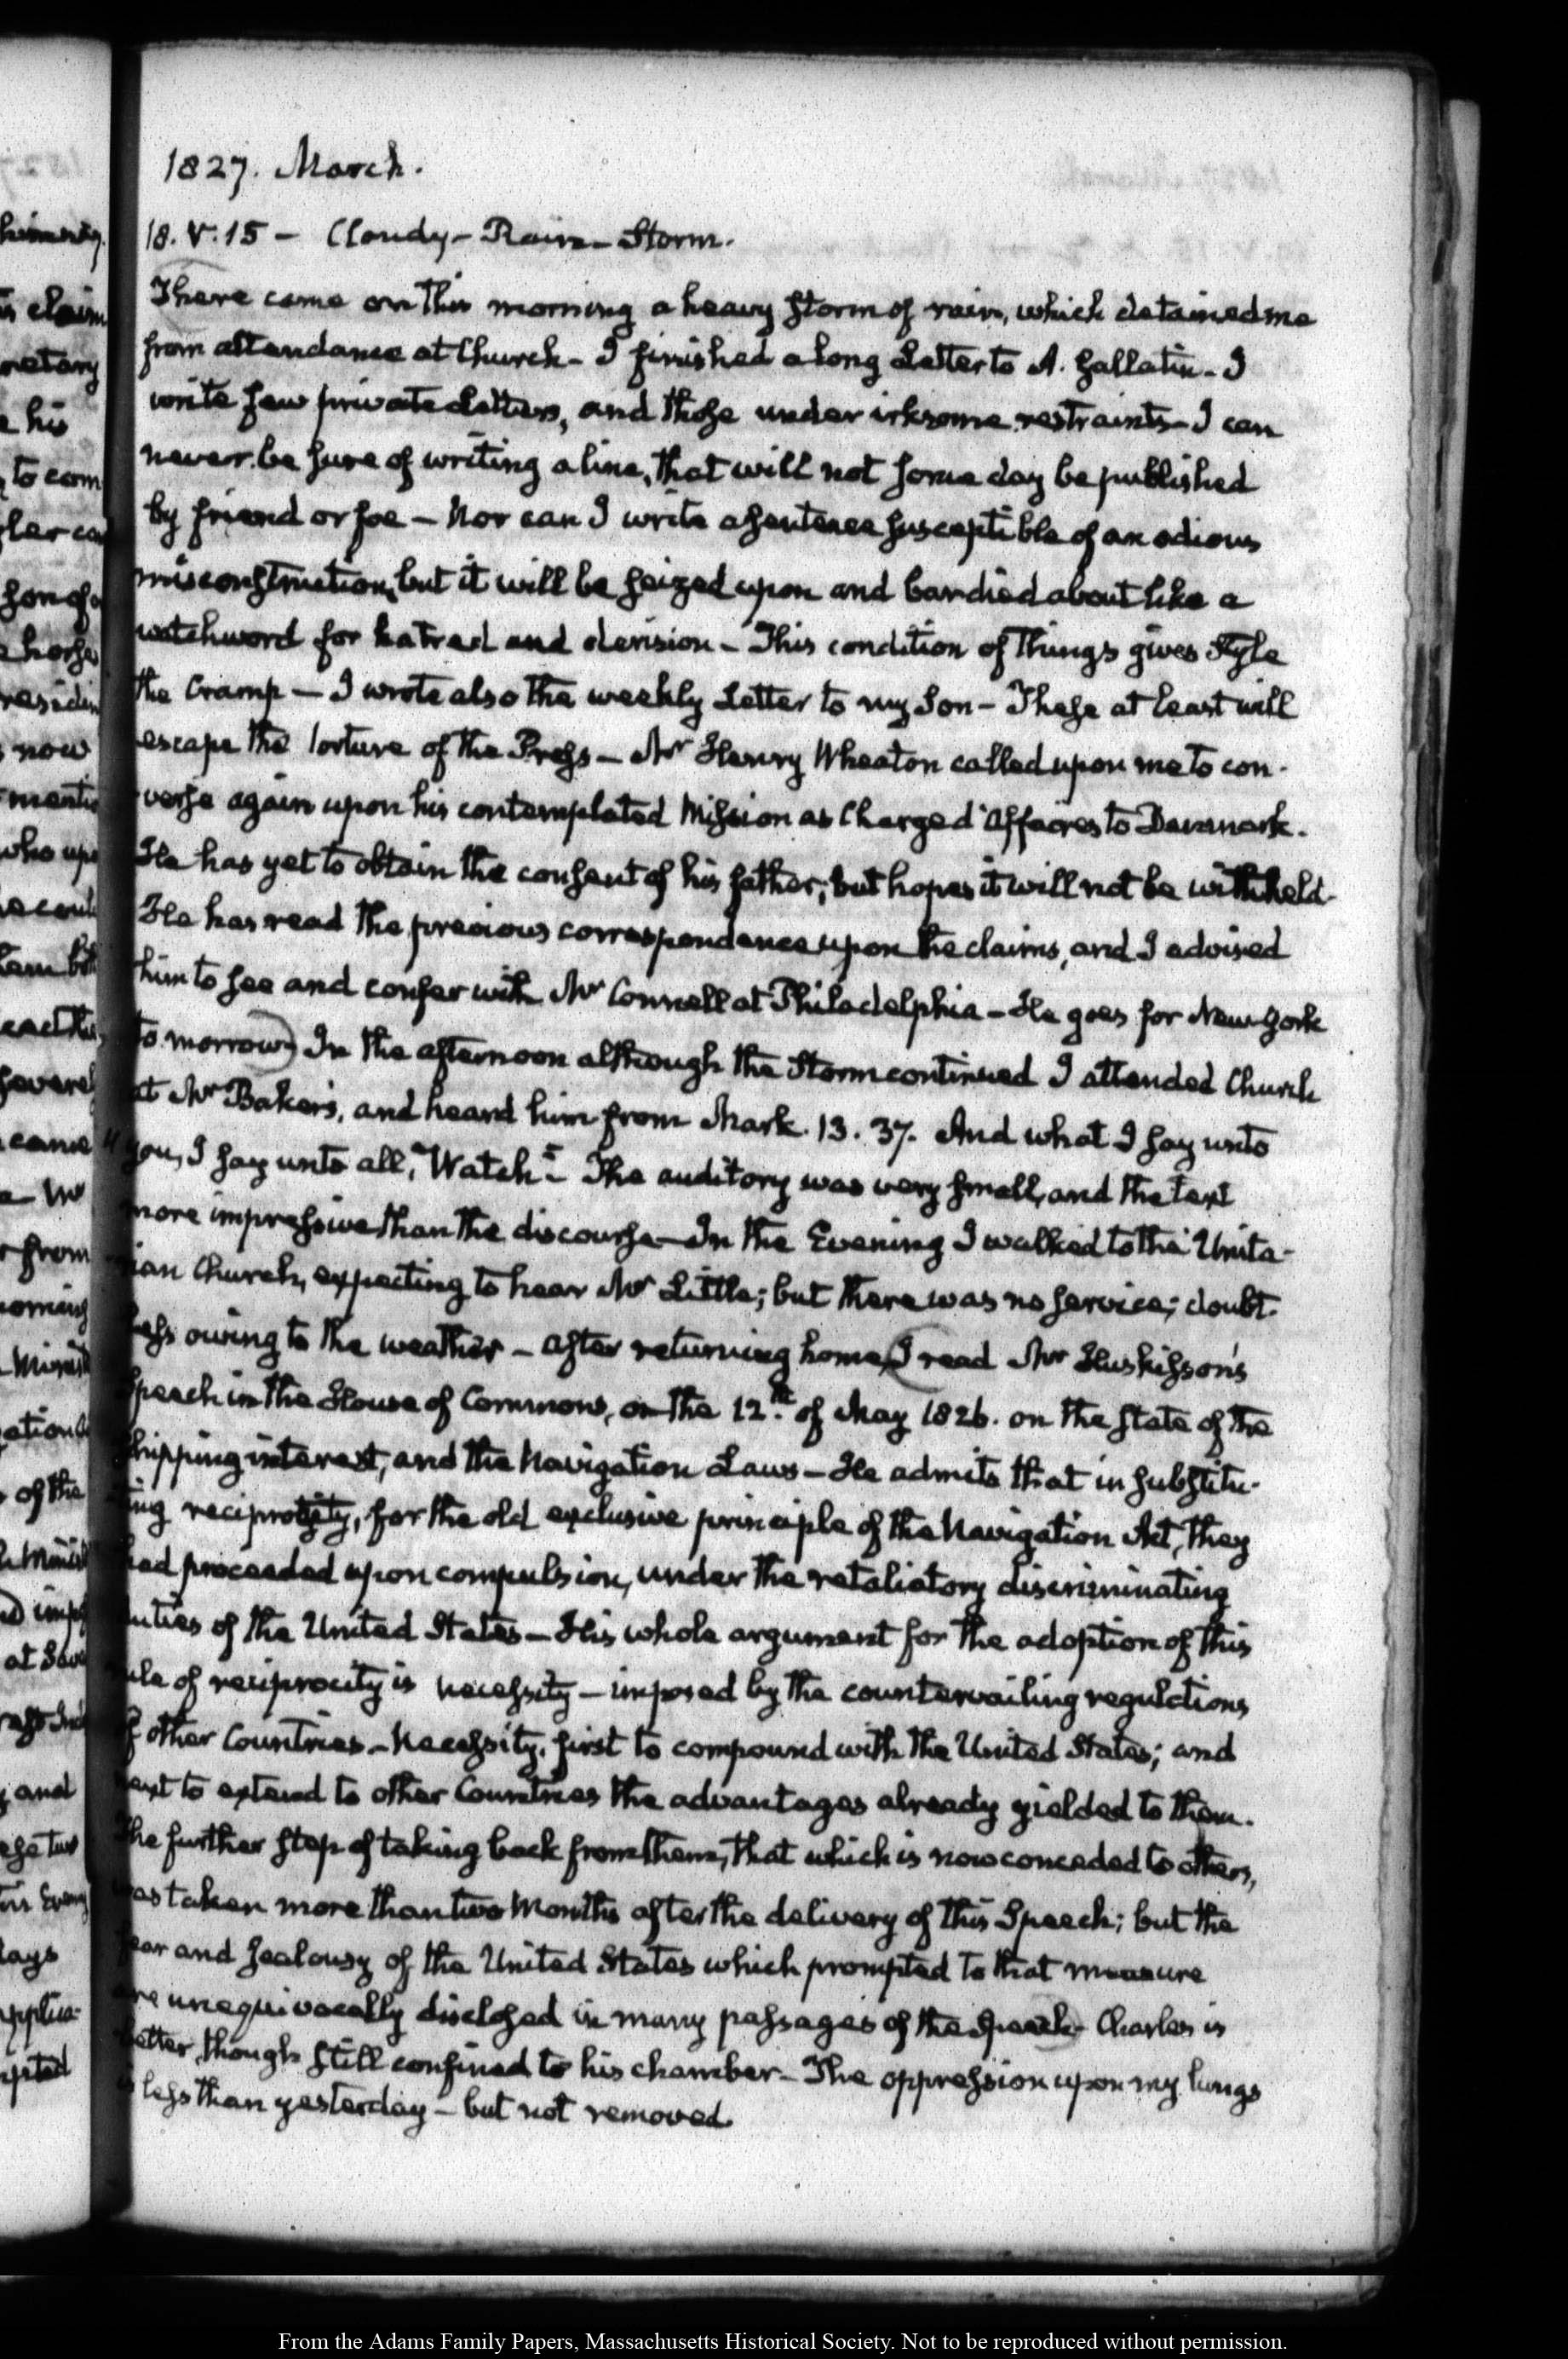 1827. March.
18. V. 15 — Cloudy — Rain — Storm.
There came on this morning a heavy storm of rain, which detained me
from attendance at Church — I finished a long Letter to A. Gallatin — I
write few private Letters, and those under irksome restraints — I can
never be sure of writing a line, that will not some day be published
by friend or foe — Nor can I write a sentence susceptible of an odious
misconstruction, but it will be seized upon and bandied about like a
watchword for hatred and derision — This condition of things gives style
the Cramp — I wrote also the weekly Letter to my Son — These at least will
escape the torture of the Press — Mr Henry Wheaton called upon me to con-
verse again upon his contemplated Mission as Charge d'Affaires to Denmark.
He has yet to obtain the consent of his father, but hopes it will not be withheld.
He has read the previous correspondence upon the claims, and I advised
him to see and confer with Mr Connell at Philadelphia — He goes for New-York
to morrow) In the afternoon although the Storm continued I attended Church
at Mr Baker's, and heard him from Mark. 13. 37. And what I say unto
"you, I say unto all, "Watch" — The auditory was very small, and the text
more impressive than the discourse — In the Evening I walked to the Unita-
rian Church, expecting to hear Mr Little; but there was no service; doubt-
less owing to the weather — After returning home (I read Mr Huskisson's
Speech in the House of Commons, on the 12th of May 1826. on the state of the
Shipping interest, and the Navigation Laws — He admits that in substitu-
ting reciprocity, for the old exclusive principle of the Navigation Act, they
had proceeded upon compulsion, under the retaliatory discriminating
duties of the United States — His whole argument for the adoption of this
rule of reciprocity is necessity — imposed by the countervailing regulations
of other Countries — Necessity, first to compound with the United States; and
next to extend to other Countries the advantages already yielded to them.
The further step of taking back from them, that which is now conceded to others,
was taken more than two Months after the delivery of this Speech; but the
fear and jealousy of the United States which prompted to that measure
are unequivocally disclosed in many passages of the Speech) Charles is
better, though still confined to his chamber — The oppression upon my lungs
is less than yesterday — but not removed
From the Adams Family Papers, Massachusetts Historical Society. Not to be reproduced without permission.